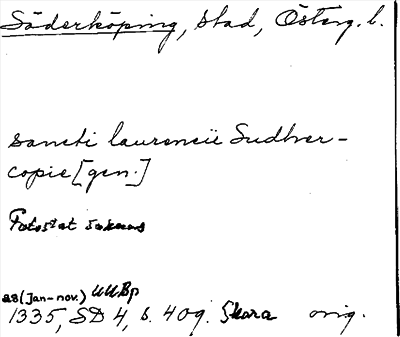 Söderköping, stad, Österg. l.
sancti laurencii Sudher-
copie [gen.]
Fotostat saknas
as (Jan-nov.) UUBp
1335, SD 4, s. 409. Skara orig.